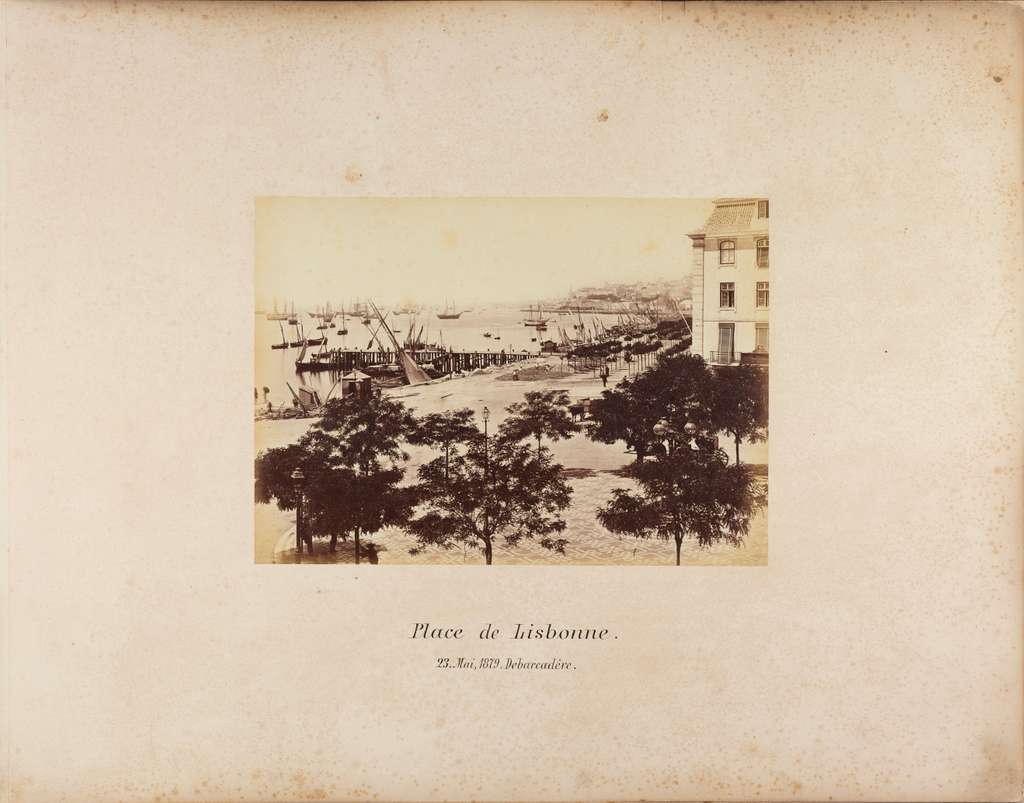 Place de Lisbonne.
23. Mai, 1879. Debarcadére.